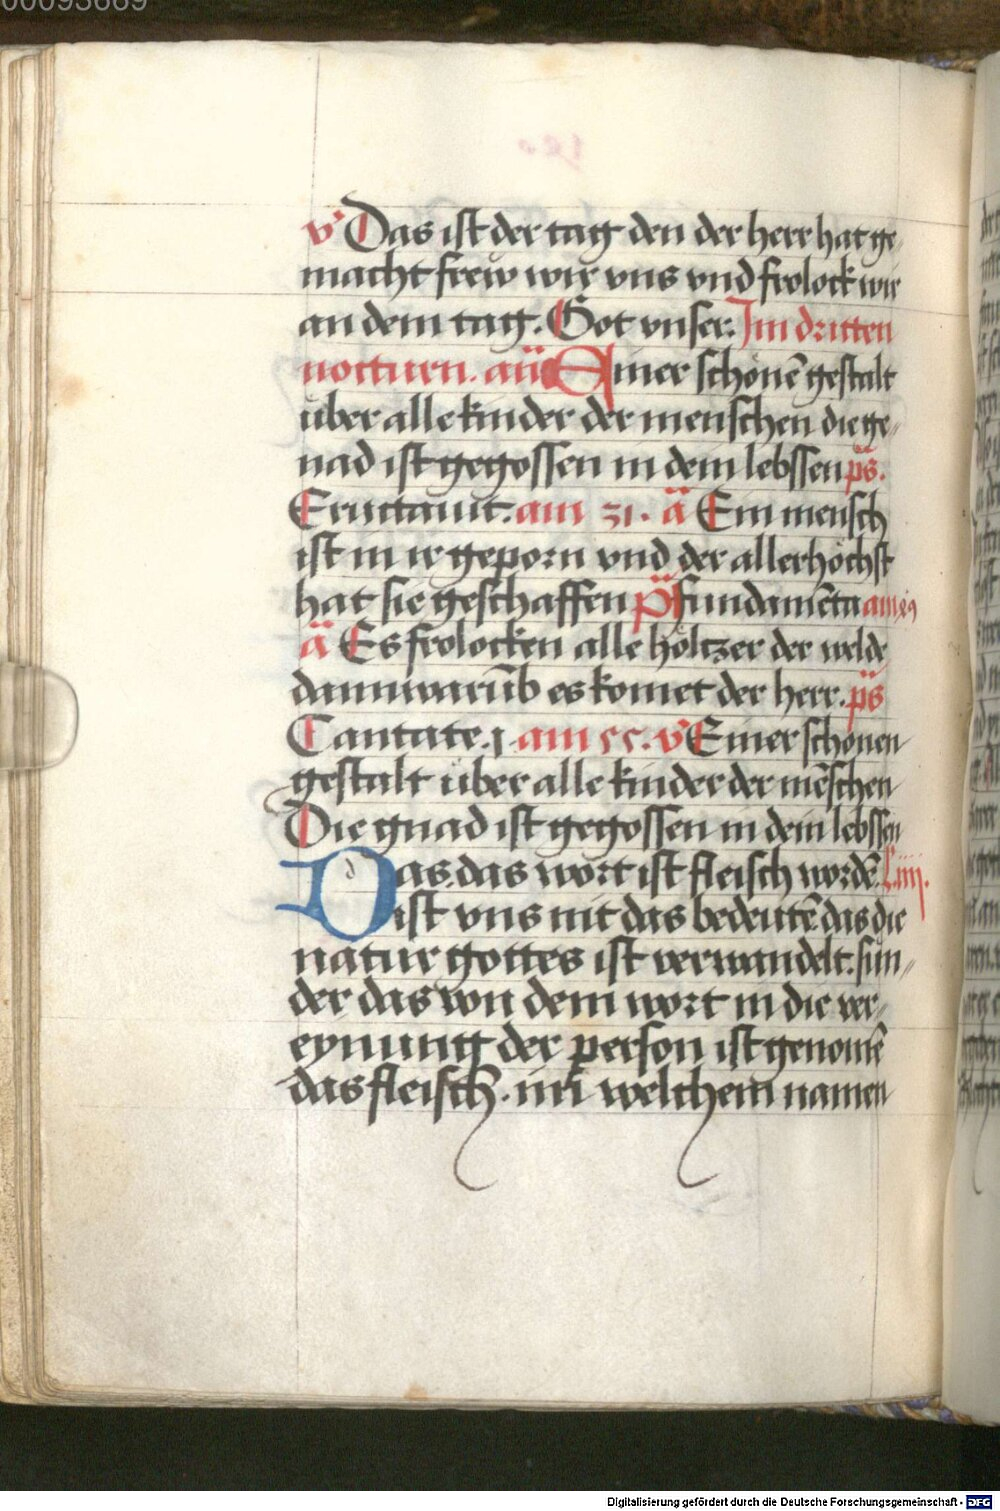 00093669
v Das ist der tag den der herr hat ge-
macht frew wir vns vnd frolock wir
an dem tag. Got vnser. Im dritten
notturn. añ Ainer schönē gestalt
über alle kinder der menschen die ge-
nad ist gegossen in dein lebssen ps.
Eructauit. am 31. ä Ein mensch
ist in ir geporn vnd der allerhöchst
hat sie geschaffen ps fundamēta am
ä Es frolocken alle höltzer der welde
dann warūb es komet der herr. ps
Cantate. j am 55. v Einer schönen
gestalt über alle kinder der mēschen
Die gnad ist gegossen in dein lebssen
Das das wort ist fleisch wordē. L. iiij.
ist vns nit das bedeutē das die
natur gottes ist verwandelt. sun-
der das von dem wort in die ver-
eynung der person ist genomē
das fleisch. in welchem namen
Digitalisierung gefördert durch die Deutsche Forschungsgemeinschaft - DFG